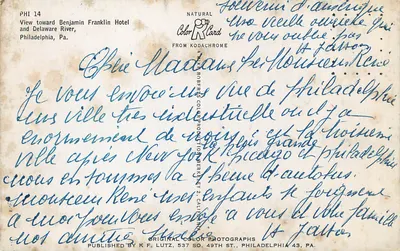 PHI 14
View toward Benjamin Franklin Hotel
and Delaware River,
Philadelphia, Pa.
NATURAL
Color Card
FROM KODACHROME
Souvenir d'amérique
une vieille ouvrière qui
ne vous oublie pas
Chère Madame et Monsieur René
Je vous envoie une vue de Philadelphie
une ville très industrielle ou il y a
enormement de noirs c'est la troisième
plus grande
ville après New York Chicago et Philadelphie
nous en sommes à
monsieur René ses enfants se joignent
a moi pour vous envoyé a vous et votre famille
nos amitiés
ORIGINAL COLOR PHOTOGRAPHS
PUBLISHED BY K. F. LUTZ, 537 SO. 49TH ST., PHILADELPHIA 43, PA.